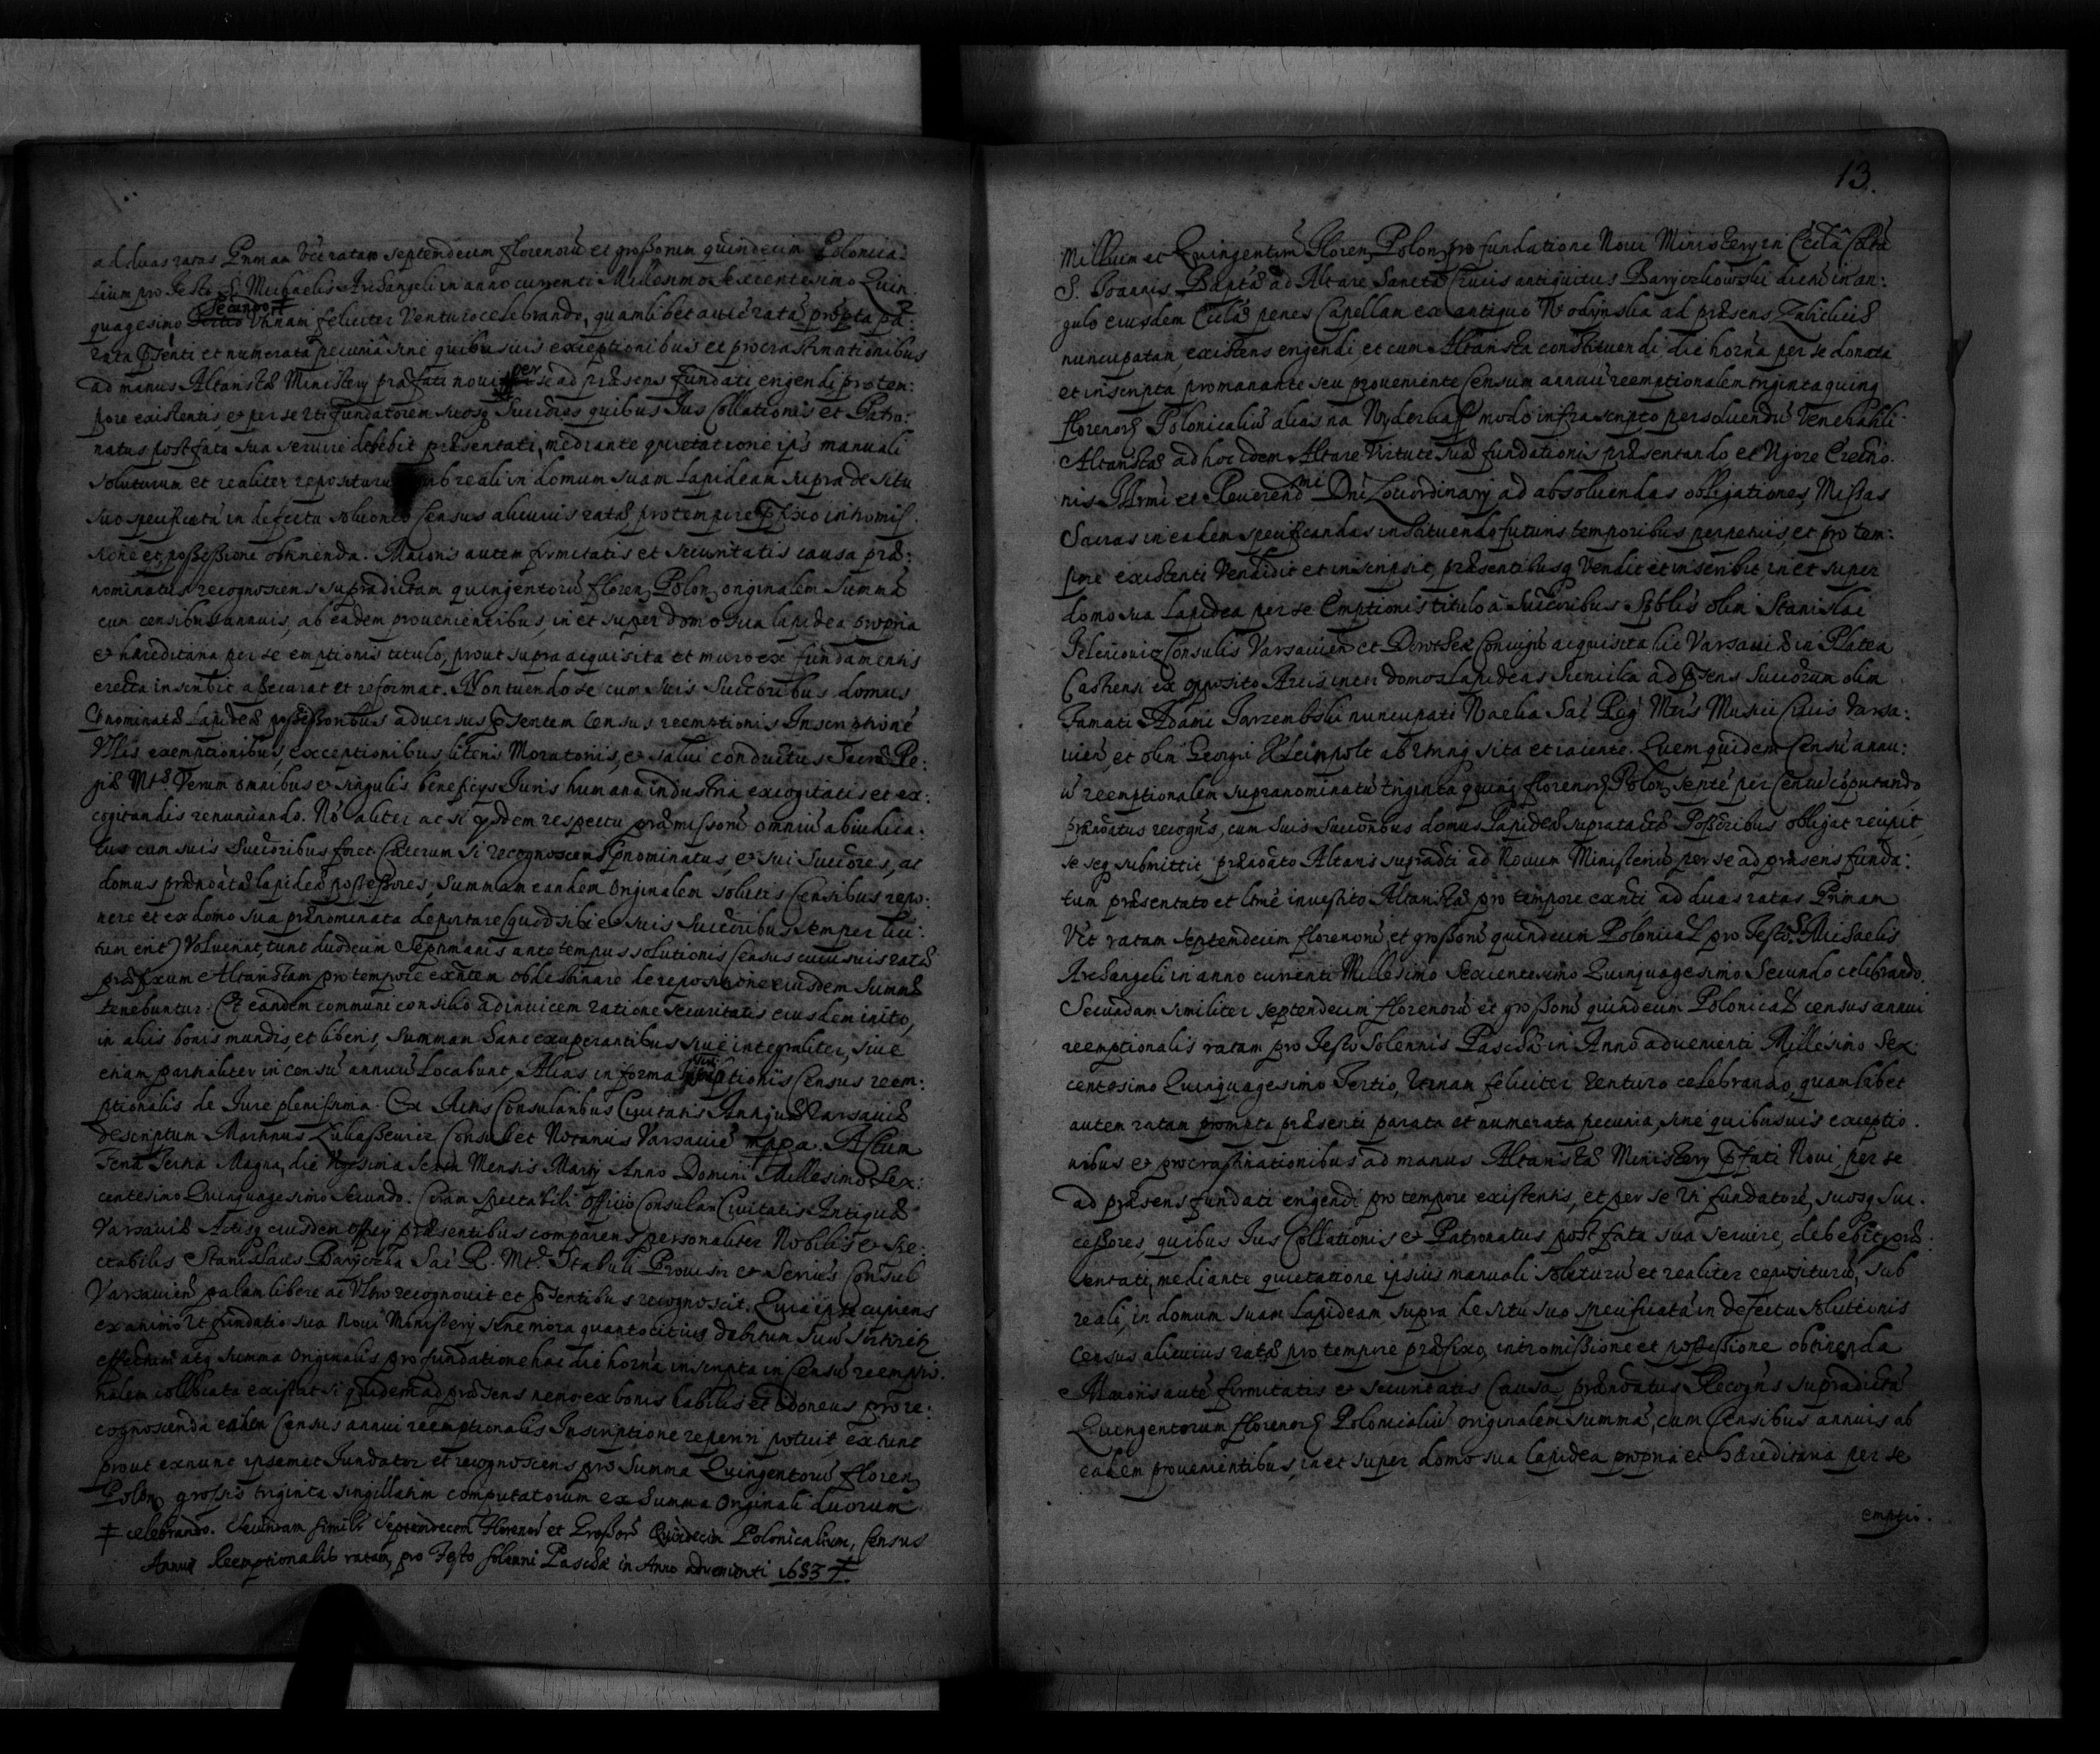 ad duas ratas Primam v̄cꝫ ratam septendecim florenorū et grossorum quindecim Polonica-
lium pro Festo S. Michaelis Archangeli in anno currenti Millesimo Sexcentesimo Quin
quagesimo Secundo Utinam feliciter Venturo celebrando, quamlibet autē ratā prompta pa:
rata pr̄senti et numerata pecuniâ sine quibusuis exceptionibus et procrastinationibus
ad manus Altaristæ Ministerij præfati noui per se ad præsens fundati erigendi pro tem:
pore existentis, et per se vti fundatorem suosq Succōres quibus Jus Collationis et Patro:
natus post fata sua seruire debebit præsentati, mediante quietatione ips manuali
soluturum et realiter repositurū sub reali in domum suam Lapideam supra de situ
suo specificatā in defectu solucionis Census alicuius ratæ pro tempore pfixo intromis
sione et possessione obtinenda. Maioris autem firmitatis et securitatis causa præ:
nominatus recognoscens supradictam quingentorū floren Polon originalem Summā
cum censibus annuis, ab eadem prouenientibus, in et super domo sua lapidea propria
et hæreditaria per se emptionis titulo, prout supra acquisita et muro ex fundamentis
erecta inscribit assecurat et reformat. Non tuendo se cum suis Succōribus domus
pnominatæ Lapideæ possessoribus aduersus psentem Census reemptionis Inscriptionē
Vllis exemptionibus, exceptionibus, literis Moratoriis, et salui conductus Sacræ Re:
giæ Mtꝭ. Verum omnibus et singulis beneficijs Juris humana industria excogitatis et ex:
cogitandis renunciando. Nō aliter ac si ijsdem respectu præmissorū omniū abiudica:
tus cum suis Succōribus foret. Cæterum si recognoscens pnominatus, et sui Succōres, ac
domus prænōatæ lapideæ possessores, Summam eandem Originalem solutis Censibus repo:
nere et ex domo sua prænominata deportare (quod sibi et suis Succōribus semper lici:
tum erit) Voluerint, tunc duodecim Septimanis ante tempus solutionis Census cuiusuis ratæ
præfixum Altaristam pro tempore exn̄tem obdestinare de repositione eiusdem Summæ
tenebuntur. Et eandem communi consilio adinuicem ratione securitatis eiusdem inito,
in aliis bonis mundis, et liberis, Summam hanc exuperantibus siue integraliter, siue
etiam partialiter in censū annuū Locabunt, Alias in forma inscriptionis Census reem:
ptionalis de Jure plenissima. Ex Actis Consularibus Ciuitatis Antiquæ Varsauiæ
descriptum Martinus Lubasseuicz Consul et Notarius Varsauiēs mppa. Actum
Feria Tertia Magna, die Vigesima Sexta Mensis Martij Anno Domini Millesimo Sex:
centesimo Quinquagesimo Secundo. Coram Spectabili Officio Consulari Ciuitatis Antiquæ
Varsauiæ Actisq eiusdem Officij præsentibus comparens personaliter Nobilis et Spe:
ctabilis Stanislaus Baryczka Sac̄ R. Mtꝭ. Stabuli Prouisor et Scrius Consul
Varsauien palam libere ac Vltro recognouit et psentibus recognoscit. Quia ipse cupiens
ex animo vt fundatio sua noui Ministerij sine mora quantocitius debitum suū sortiretr
effectum atq Summa Originalis pro fundatione hac die horna inscripta in Censū reemptio
nalem collocata existat siquidem ad præsens nemo ex bonis habilis et idoneus pro re:
cognoscenda eadem Census annui reemptionalis Inscriptione reperiri potuit ex tunc
prout ex nunc ipsemet Fundator et recognoscens pro Summa Quingentorū Floren
Polon grossis triginta singillatim computatorum ex Summa Originali duorum
‡ celebrando. Secundam similr Septemdecem Florenorū et Grossorū Quindecim Polonicalium, Census
Annui Reemptionalis ratam, pro Festo solenni Paschæ in Anno aduenienti 1653 ‡.
13.
Millium et Quingentorū Floren Polon pro fundatione Noui Ministerij in Ecclā
S. Joannis Baptæ ad Altare Sanctæ Crucis antiquitus Baryczkowski dictū in an:
gulo eiusdem Ecclæ penes Capellam ex antiquo Wodynska ad præsens
nuncupatam, existens erigendi, et cum Altarista constituendi die horna per se donata
et inscripta promanante seu proueniente Censum annuū reemptionalem triginta quinq
florenorꝫ Polonicaliū alias na Wyderkaff modo infra scripto persoluendū Venerabili
Altaristæ ad hoc idem Altare Virtute suæ fundationis præsentando et Vigore Erectio
nis Illrmi et Reuerendmi Dnī Loci ordinarij ad absoluendas obligationes, Missas
Sacras in eadem specificandas instituendo futuris temporibus perpetuis, et pro tem:
pore existenti Vendidit et inscripsit, præsentibusq Vendit et inscribit, in et super
domo sua Lapidea per se Emptionis titulo â Succōribus Spblis olim Stanislai
Consulis Varsauien et Dorotheæ Coniugū acquisita hic Varsauiæ in Platea
Castrensi ex opposito Arcis inter domos Lapideas Sienicka ad psens Succōrum olim
Famati Adami Jarzembski nuncupati Naelia Sac̄ Reg Mtis Musici Ciuis Varsa:
uien, et olim Georgii Kleinpolt ab vtrinq sita et iacente. Quem quidem Censū annu:
ū reemptionalem supranominatū triginta quinq florenorꝫ Polon septē per Centū cōputando
prænōatus recogns, cum suis succōribus domus Lapideæ supratactæ Possoribus obligat recipit
se seq submittit prænōato Altaris supradti ad Nouum Ministeriū per se ad præsens funda:
tum præsentato et ltmē inuestito Altaristæ pro tempore exn̄ti ad duas ratas Primam
Vcꝫ ratam septendecim florenorū et grossorū quindecim Polonicaꝉ pro Festo S. Michaelis
Archangeli in anno currenti Millesimo Sexcentesimo Quinquagesimo Secundo celebrando.
Secundam similiter septendecim florenorū et grossorū quindecim Polonicaꝉ census annui
reemptionalis ratam pro Festo Solennis Paschæ in Anno aduenienti Millesimo Sex:
centesimo Quinquagesimo Tertio, Vtinam feliciter Venturo celebrando, quamlibet
autem ratam prompta præsenti parata et numerata pecunia, sine quibusuis exceptio
nibus et procrastinationibus ad manus Altaristæ Ministerij pfati Noui, per se
ad præsens fundati erigendi pro tempore existentis, et per se vti fundatorē, suosq Suc.
cessores, quibus Jus Collationis et Patronatus post fata sua seruire, debebit præ:
sentati, mediante quietatione ipsius manuali soluturū et realiter repositurū, sub
reali, in domum suam Lapideam supra de situ suo specificatā in defectu solutionis
Census alicuius ratæ pro tempore præfixo, intromissione et possessione obtinenda
Maioris autē firmitatis et securitatis Causa, prænōatus Recogns supradictā
Quingentorum florenorꝫ Polonicaliū originalem summā, cum Censibus annuis ab
eadem prouenientibus, in et super domo sua lapidea propria et hæreditaria per se
emptio.